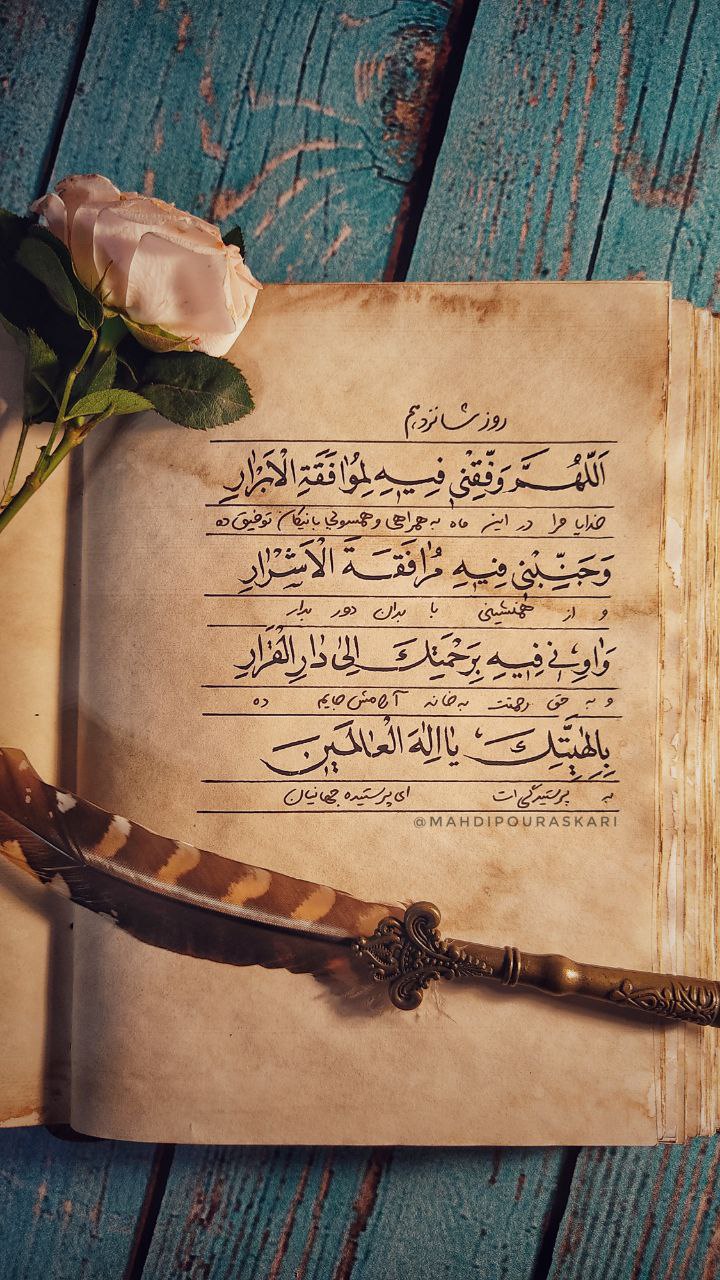 روز شانزدهم
اَللّٰهُمَّ وَفِّقْنى فيهِ لِمُوٰافَقَةِ الْاَبْرٰارِ
خدایا مرا در این ماه به همراهی و همسوئی با نیکان توفیق ده
وَجَنِّبْنى فيهِ مُرٰافَقَةَ الْاَشْرٰارِ
و از همنشینی با بدان دور بدار
وَاٰوِنى فيهِ بِرَحْمَتِكَ اِلىٰ دٰارِ الْقَرٰارِ
و به حق رحمتت به خانه آرامش جایم ده
بِاِلٰهِيَّتِكَ يٰا اِلٰهَ الْعٰالَمينَ
به پرستیدگی ات ای پرستیده جهانیان
@MAHDIPOURASKARI